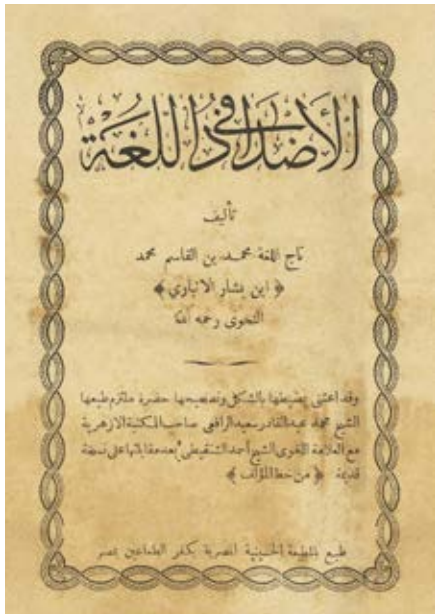 الأضداد في اللغة
تأليف
تاج اللغة محمد بن القاسم محمد
﴿ ابن بشار الانباري ﴾
النحوى رحمه الله
وقد اعتنى بضبطها بالشكل وتصحيحها حضرة ملتزم طبعها
الشيخ محمد عبد القادر سعيد الرافعى صاحب المكتبة الازهرية
مع العلامة اللغوى الشيخ أحمد الشنقيطى بعد مقابلتها على نسخة
قديمة ﴿ من خط المؤلف ﴾
طبع بالمطبعة الحسينية المصرية بكفر الطماعين بمصر